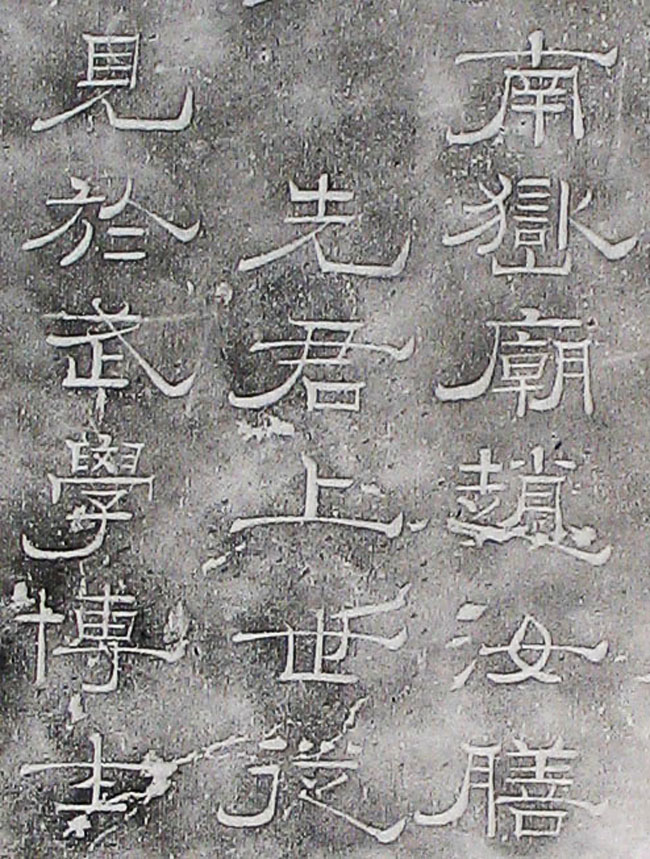 南嶽廟趙汝膳
先君上世從
見於武學博士